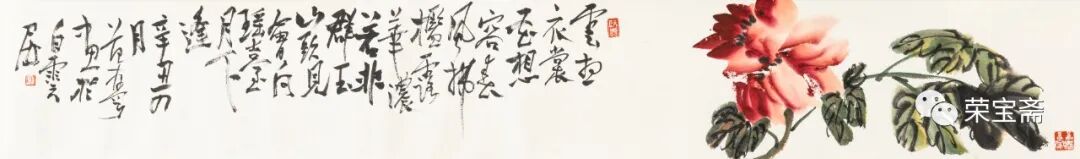 雲想
衣裳
花想
容春
風拂
檻露
華濃
若非
群玉
山頭見
會向
瑤臺
月下
逢
辛丑四
月
白雲
居
荣宝斋